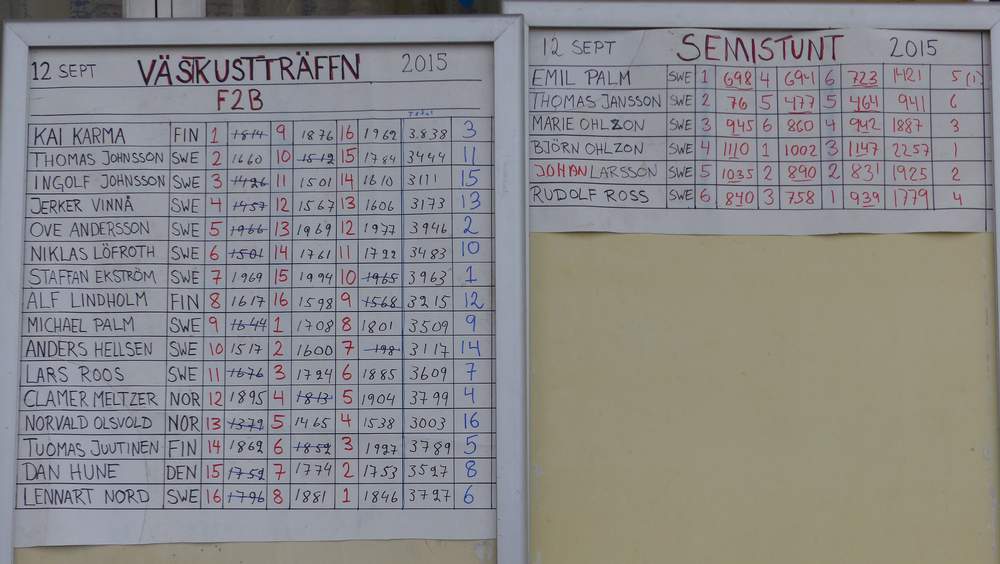 12 SEPT VÄSTKUSTTRÄFFN 2015
F2B
TOTAL
KAI KARMA FIN 1 1814 9 1876 16 1962 3.838 3
THOMAS JOHNSSON SWE 2 1660 10 1512 15 1784 3444 11
INGOLF JOHNSSON SWE 3 1426 11 1501 14 1610 3111 15
JERKER VINNÅ SWE 4 1457 12 1567 13 1606 3173 13
OVE ANDERSSON SWE 5 1966 13 1969 12 1977 3946 2
NIKLAS LÖFROTH SWE 6 1501 14 1761 11 1722 3483 10
STAFFAN EKSTRÖM SWE 7 1969 15 1994 10 1965 3963 1
ALF LINDHOLM FIN 8 1617 16 1598 9 1568 3215 12
MICHAEL PALM SWE 9 1644 1 1708 8 1801 3509 9
ANDERS HELLSEN SWE 10 1517 2 1600 7 198 3117 14
LARS ROOS SWE 11 1676 3 1724 6 1885 3609 7
CLAMER MELTZER NOR 12 1895 4 1813 5 1904 3799 4
NORVALD OLSVOLD NOR 13 1372 5 1465 4 1538 3003 16
TUOMAS JUUTINEN FIN 14 1862 6 1852 3 1927 3789 5
DAN HUNE DEN 15 1752 7 1774 2 1753 3527 8
LENNART NORD SWE 16 1796 8 1881 1 1846 3727 6
12 SEPT SEMISTUNT 2015
EMIL PALM SWE 1 698 4 694 6 723 1421 5 (1)
THOMAS JANSSON SWE 2 76 5 477 5 464 941 6
MARIE OHLZON SWE 3 945 6 860 4 942 1887 3
BJÖRN OHLZON SWE 4 1110 1 1002 3 1147 2257 1
JOHAN LARSSON SWE 5 1035 2 890 2 831 1925 2
RUDOLF ROSS SWE 6 840 3 758 1 939 1779 4